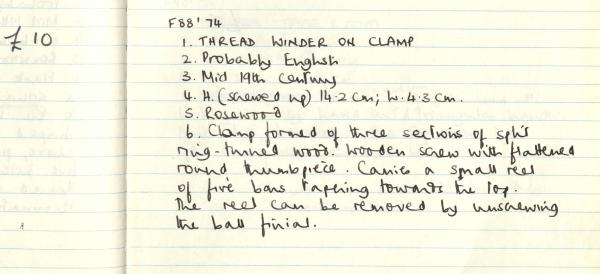 £10
F88'74
1. THREAD WINDER ON CLAMP
2. Probably English
3. Mid 19th century
4. H. (screwed up) 14.2 cm; W. 4.3 cm.
5. Rosewood
6. Clamp formed of three sections of split
ring-turned wood. Wooden screw with flattened
round thumbpiece. Carries a small reel
of five bars tapering towards the top.
The reel can be removed by unscrewing
the ball finial.